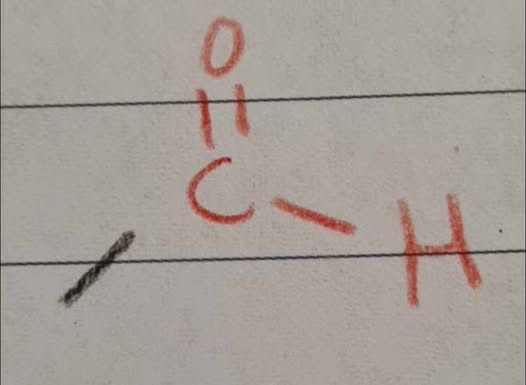 O
C
H